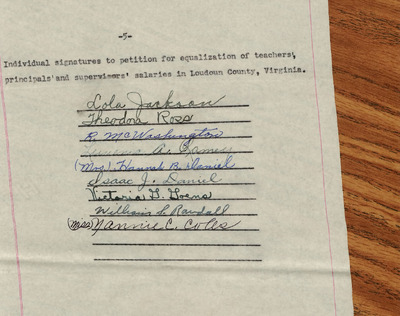 -5-
Individual signatures to petition for equalization of teachers',
principals' and supervisors' salaries in Loudoun County, Virginia.
Lola Jackson
Theodora Ross
R. McWashington
A.
(Mrs.) Hannah B. Daniel
Isaac J. Daniel
Victoria G. Goens
William L. Randall
(Miss) Nannie C. Coles